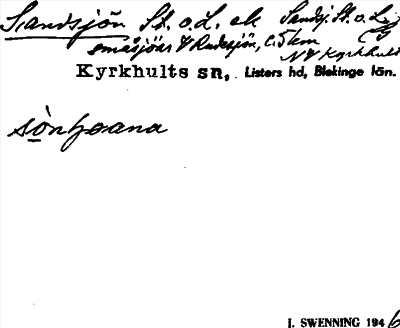 Sandsjön St. o. L. ek Sandsj. St. o. L.
småsjöar V Rudesjön, c. 5 km
NV Kyrkhult
Kyrkhults sn, Listers hd, Blekinge län.
sònhoana
J. SWENNING 1946